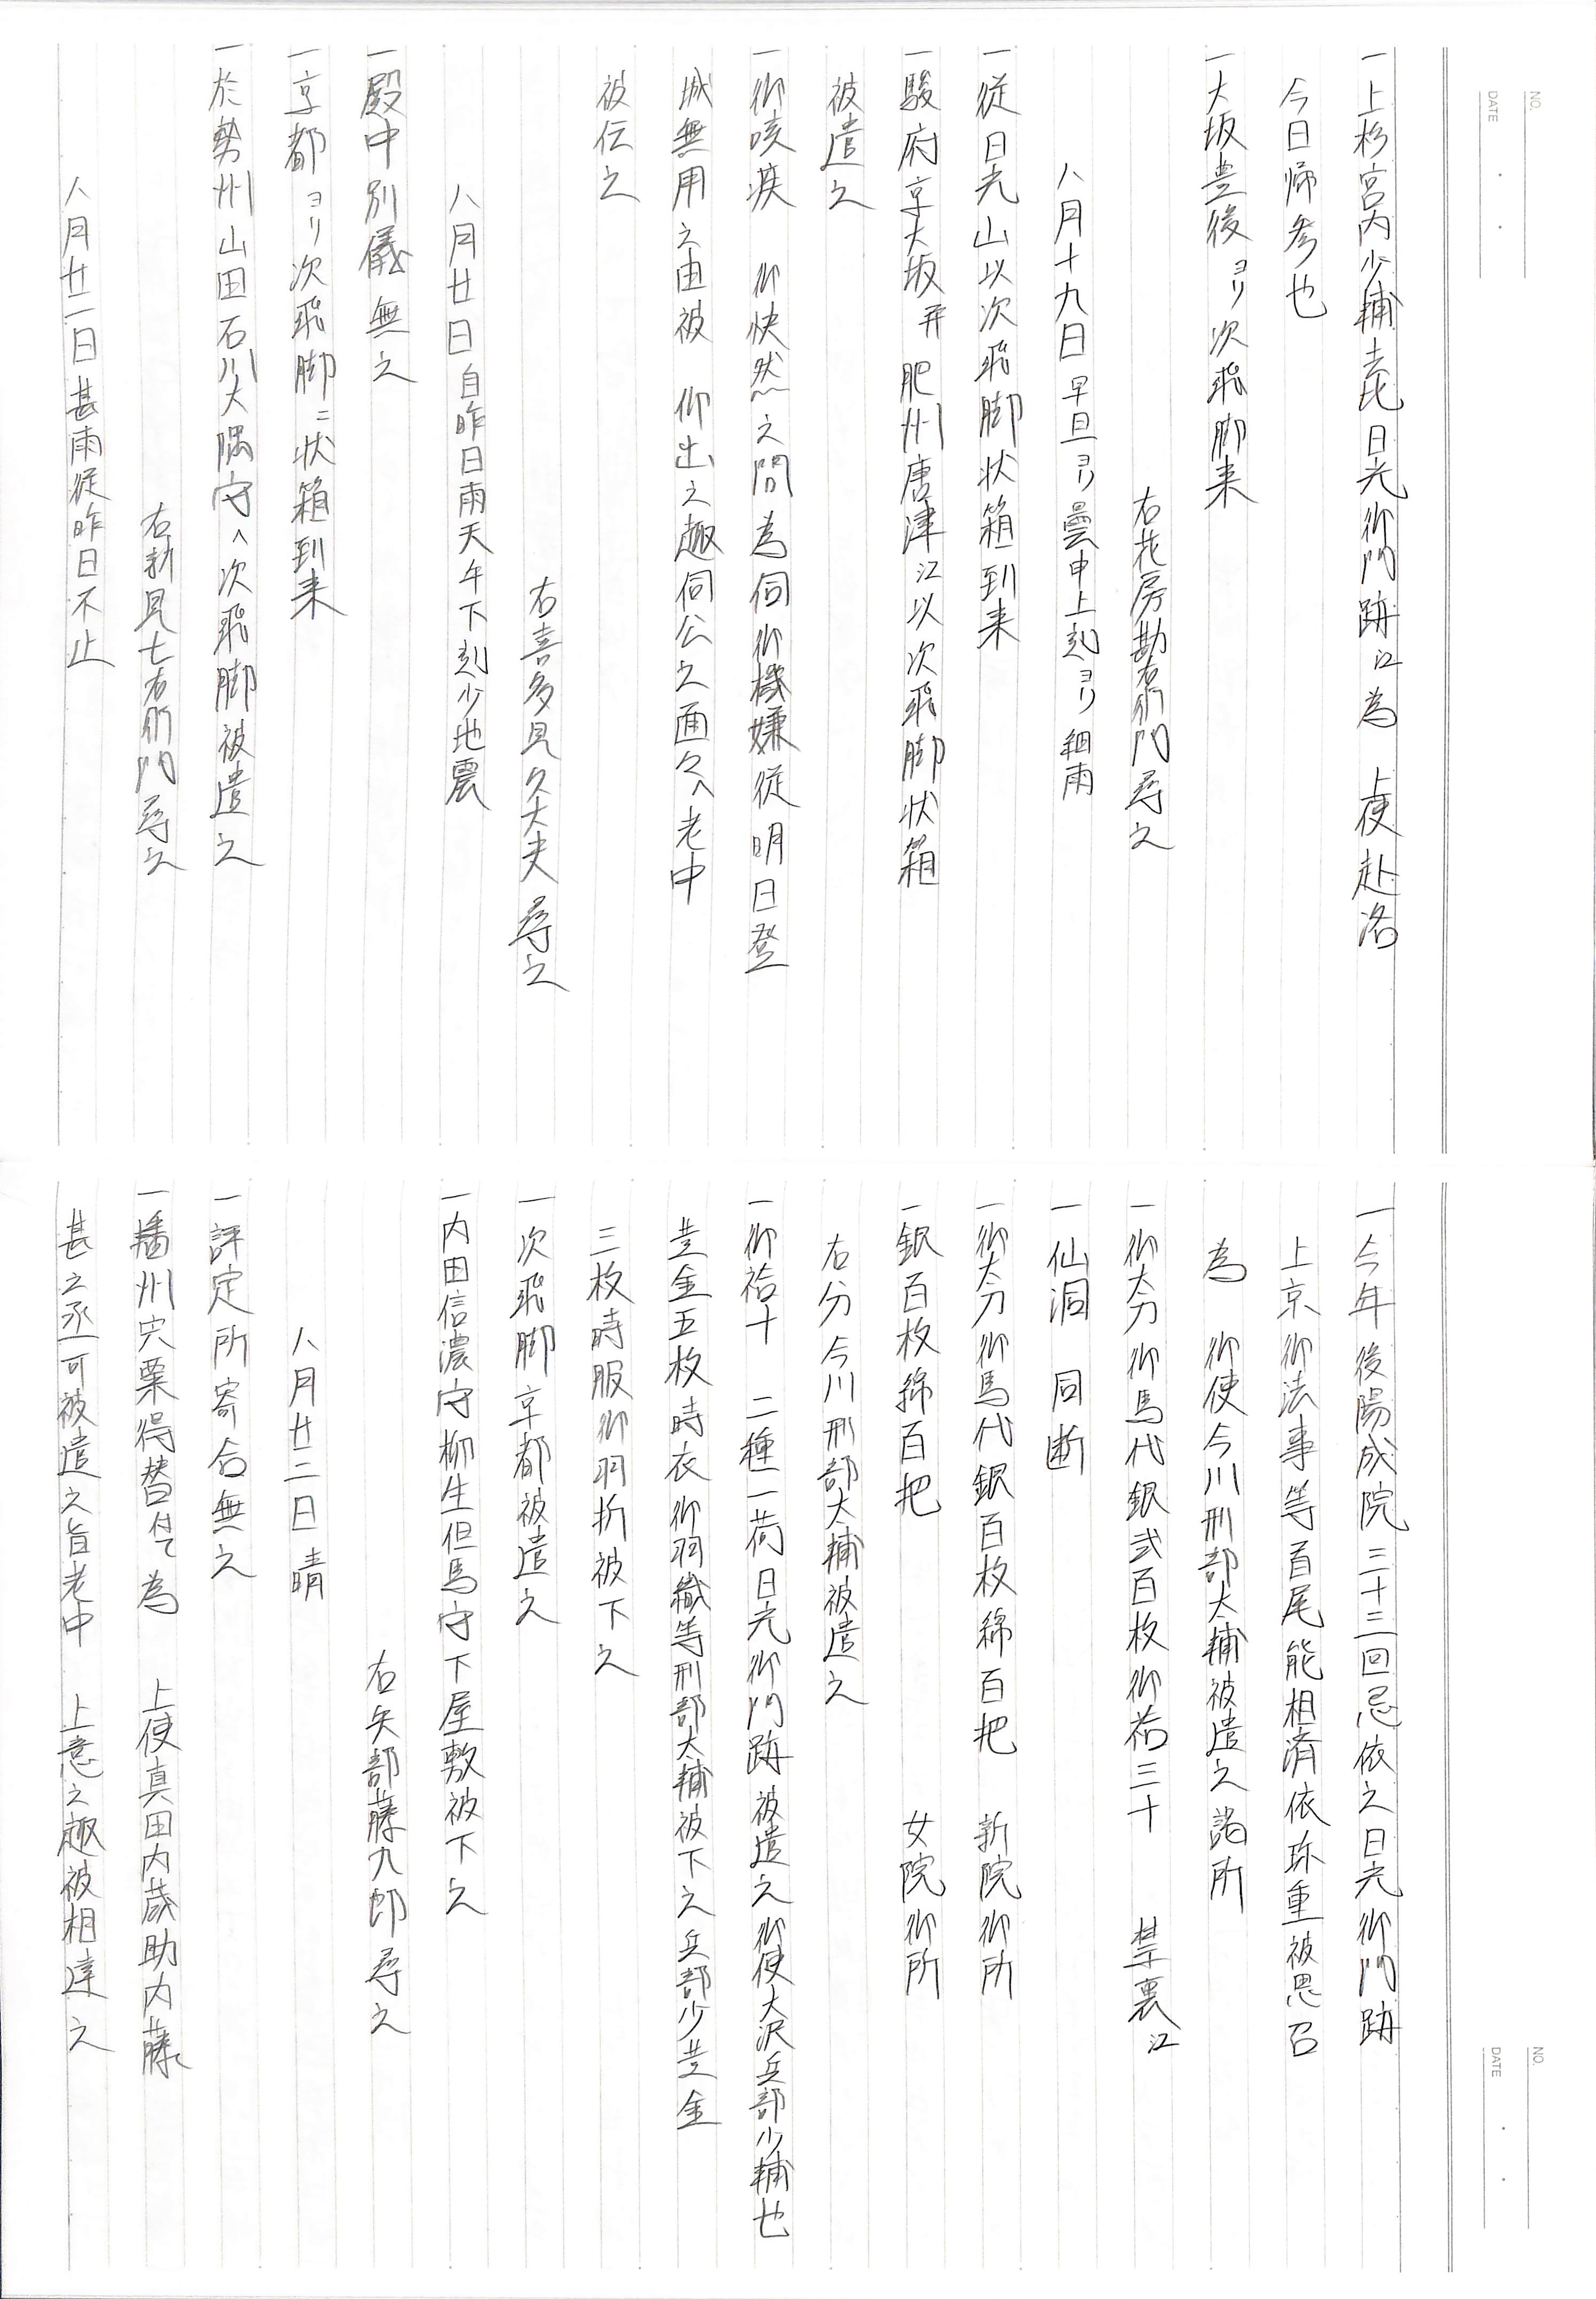 NO.
DATE
一上杉宮内少輔長昆日光御門跡江為　上使赴洛
今日帰参也
一大坂豊後ヨリ次飛脚来
右花房勘右衛門尋之
八月十九日 早旦ヨリ曇申上刻ヨリ細雨
一従日光山以次飛脚状箱到来
一駿府京大坂并肥州唐津江以次飛脚状箱
被遣之
一御咳痰　御快然之間為伺御機嫌従明日登
城無用之由被　仰出之趣伺公之面々へ老中
被伝之
右喜多見久大夫尋之
八月廿日 自昨日雨天午下刻少地震
一殿中別儀無之
一京都ヨリ次飛脚ニ状箱到来
一於勢州山田石川大隅守へ次飛脚被遣之
右新見七右衛門尋之
八月廿一日 甚雨従昨日不止
NO.
DATE
一今年後陽成院三十三回忌依之日光御門跡
上京御法事等首尾能相済依珎重被思召
為　御使今川刑部大輔被遣之諸所
一御太刀御馬代銀弐百枚御袷三十　禁裏江
一仙洞　同断
一御太刀御馬代銀百枚綿百把　新院御所
一銀百枚綿百把　女院御所
右分今川刑部大輔被遣之
一御袷十　二種一荷日光御門跡被遣之御使大沢兵部少輔也
黄金五枚時衣御羽織等刑部大輔被下之兵部少黄金
三枚時服御羽折被下之
一次飛脚京都被遣之
一内田信濃守柳生但馬守下屋敷被下之
右矢部藤九郎尋之
八月廿二日 晴
一評定所寄合無之
一播州宍粟得替付て為　上使真田内蔵助内藤
甚之丞可被遣之旨老中　上意之趣被相達之